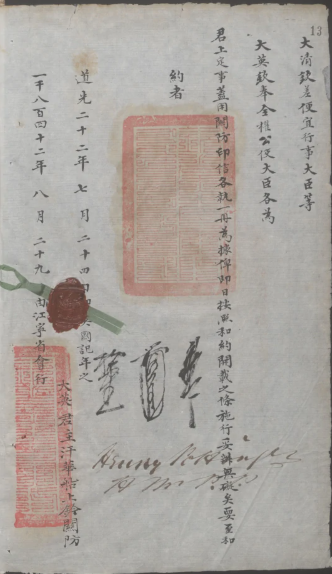 13
大清欽差便宜行事大臣等
大英欽奉全權公使大臣各為
君上定事蓋用關防印信各執一冊為據俾即日按照和約開載之條施行妥辦無礙矣要至和
約者
道光二十二年七月二十四日即英國記年之
一千八百四十二年八月二十九日由江寧省會行
大英君主汗華船上鈐關防
Henry Pottinger
H M Pl.